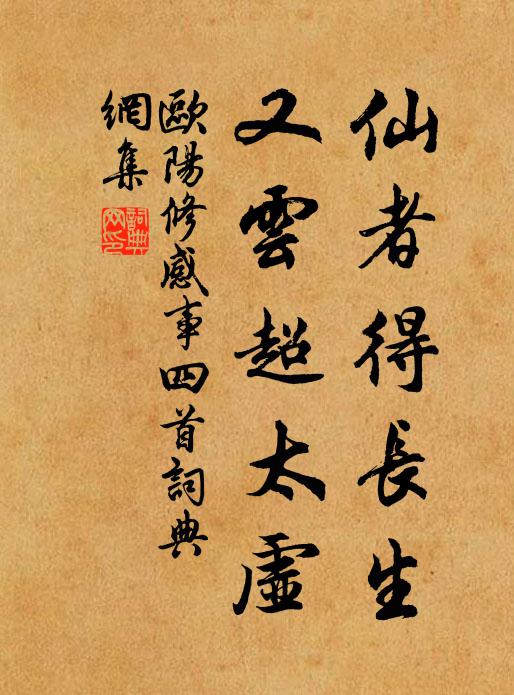 仙者得長生
又雲超太虛
歐陽修感事四首詞典
網集
詞典
網印